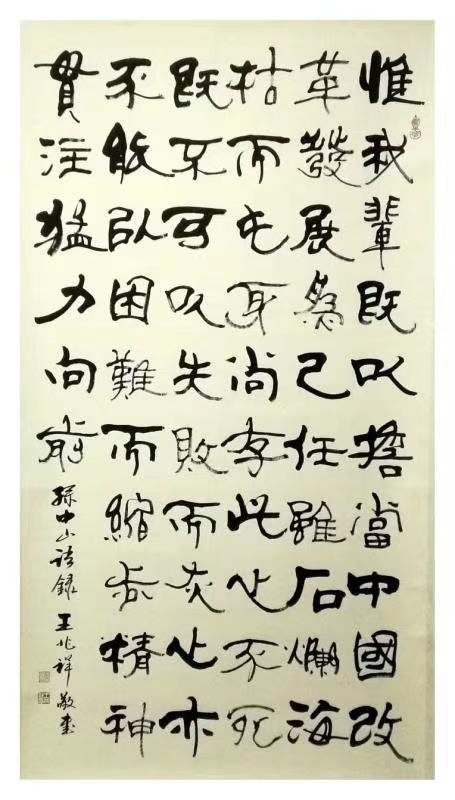 惟我輩既以擔當中國改
革發展為己任雖石爛海
枯而此身尚存此心不死
既不可以失敗而灰心亦
不能以困難而縮步精神
貫注猛力向前
孫中山語錄 王兆祥敬書